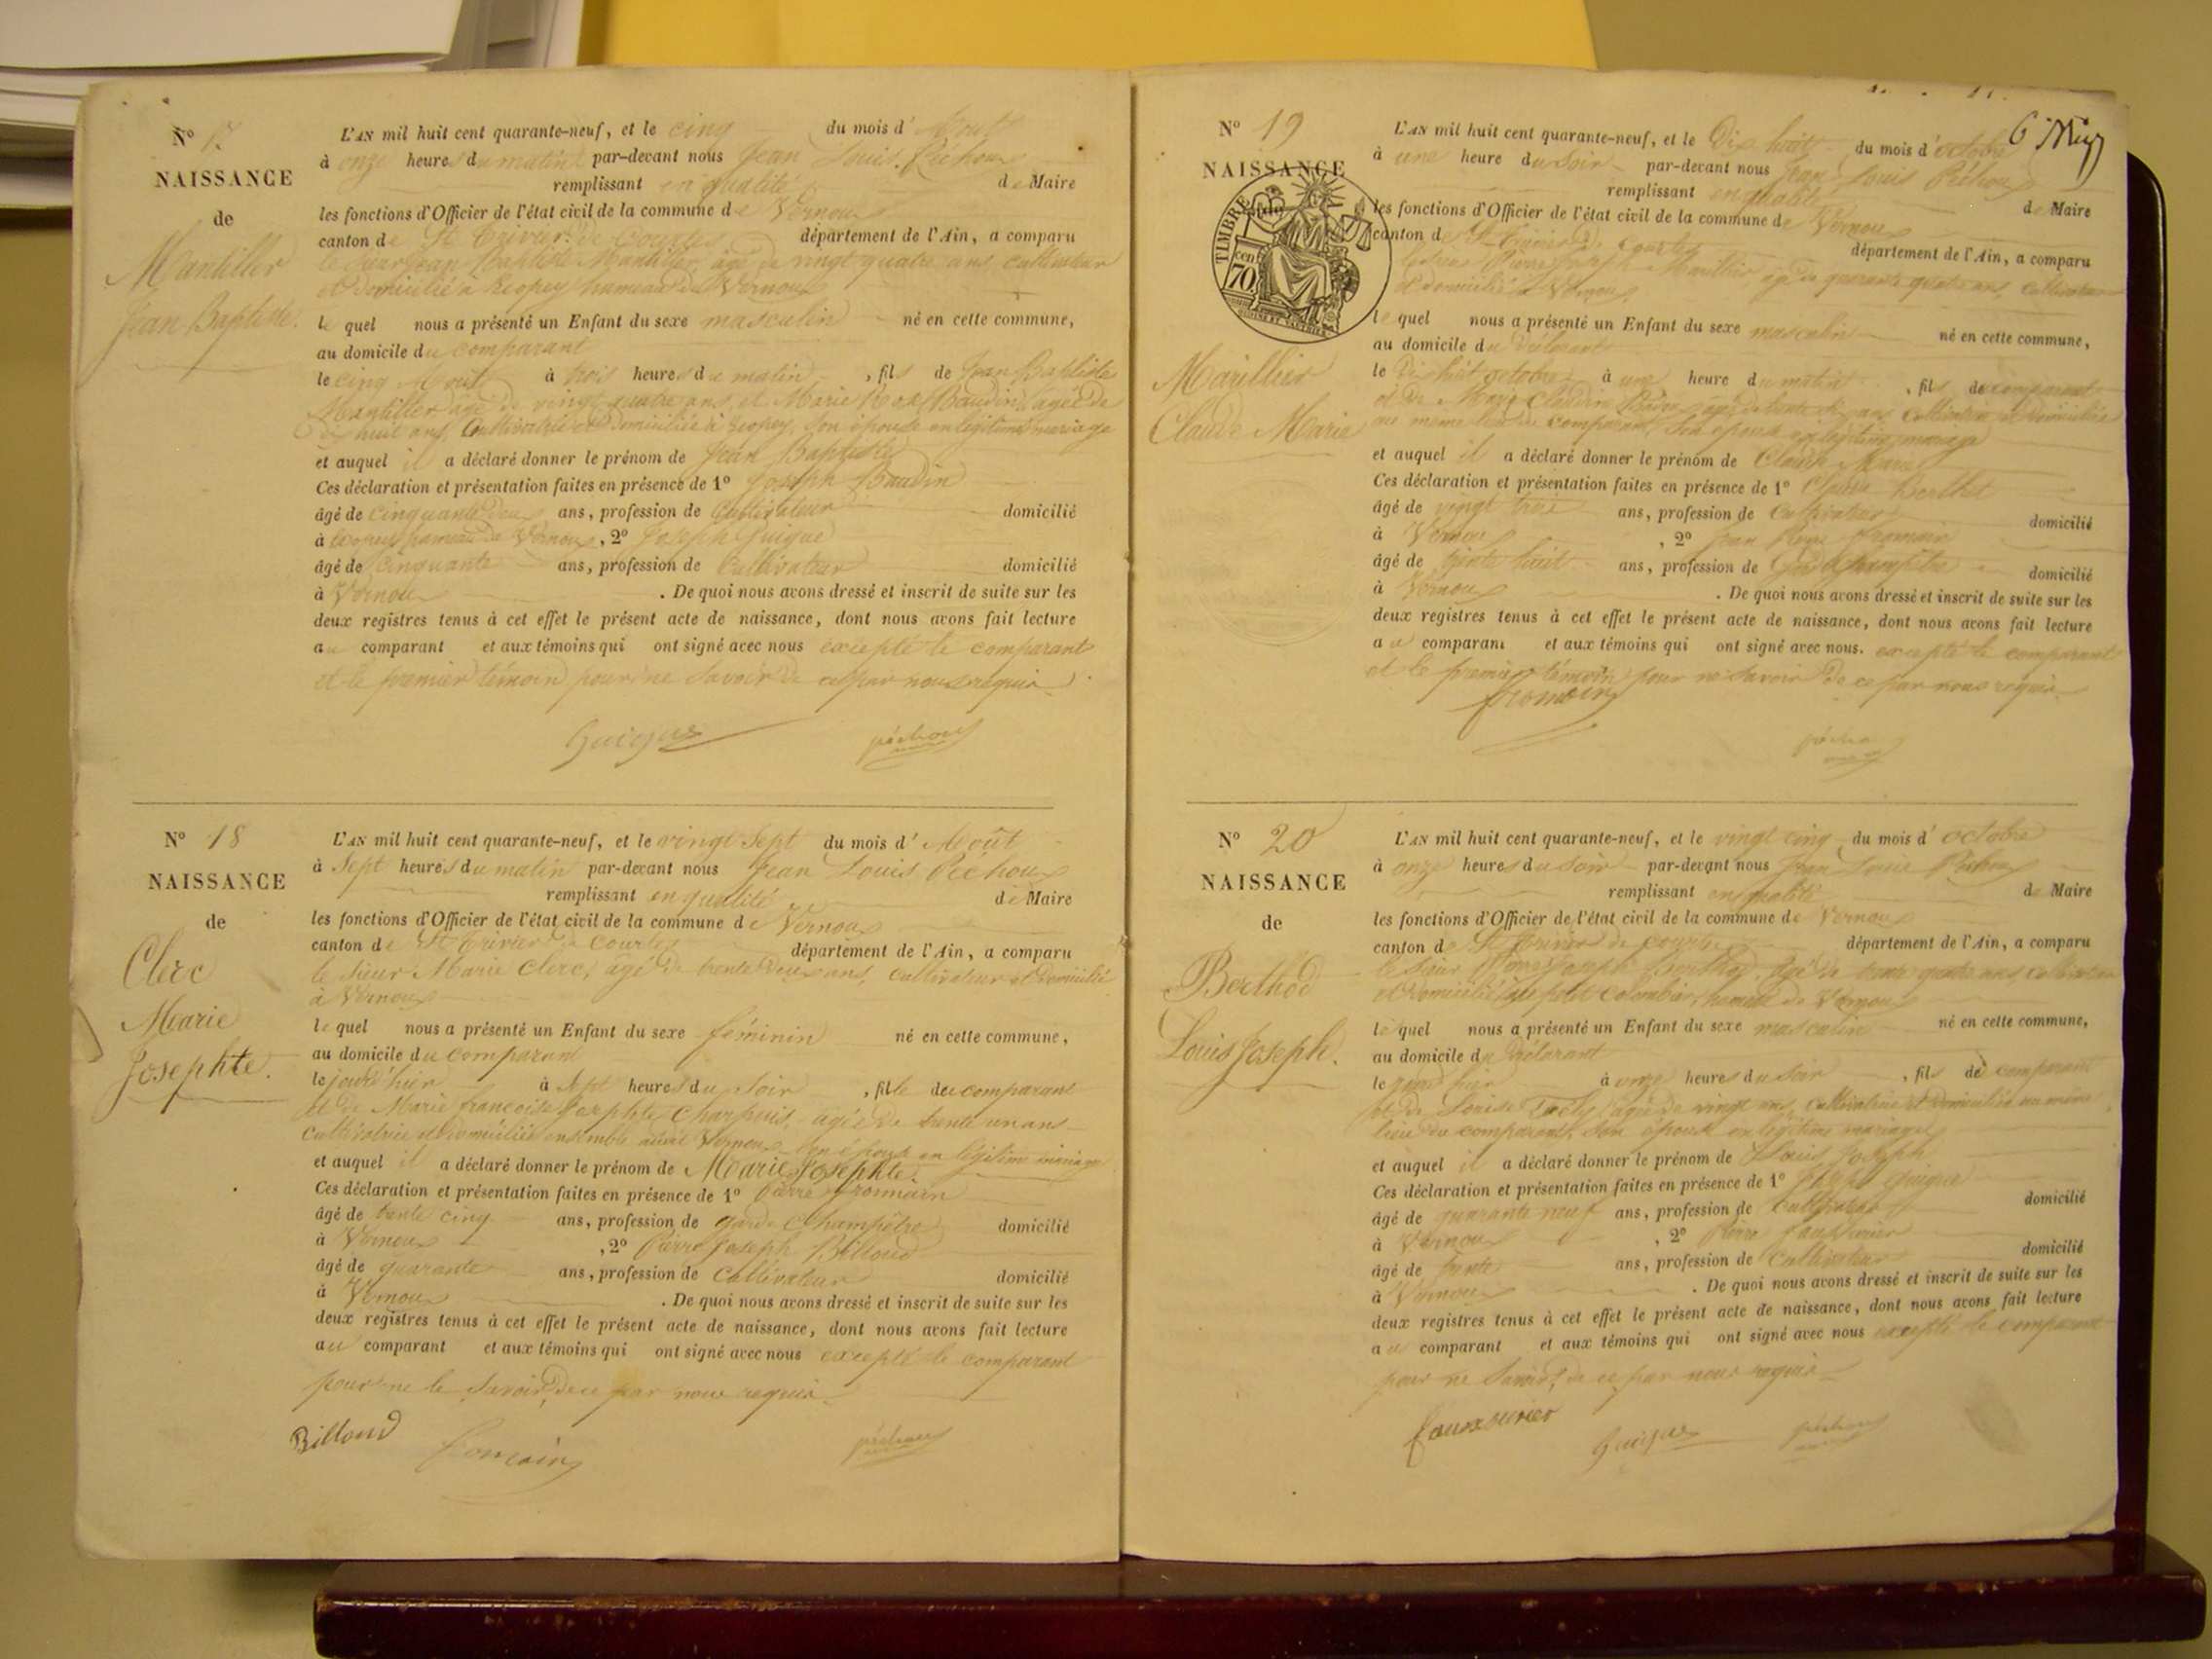 N° 17
NAISSANCE
de
Mantillier
Jean Baptiste.
L'AN mil huit cent quarante-neuf, et le cinq du mois d' Aout
à onze heures du matin par-devant nous Jean Louis Péchoux
remplissant en qualité de Maire
les fonctions d'Officier de l'état civil de la commune de Vernoux
canton de St Trivier de Courtes département de l'Ain, a comparu
le Sieur Jean Baptiste Mantillier âgé de vingt quatre ans cultivateur
et domicilié à hameau de Vernoux
le quel nous a présenté un Enfant du sexe masculin né en cette commune,
au domicile du comparant
le cinq Aout à trois heures du matin, fils de Jean Baptiste
Mantillier âgé de vingt quatre ans, et Marie Baudin, âgée de
dix huit ans, Cultivatrice et Domiciliée à son épouse en légitime mariage
et auquel il a déclaré donner le prénom de Jean Baptiste
Ces déclaration et présentation faites en présence de 1° Joseph Baudin
âgé de Cinquante deux ans, profession de Cultivateur domicilié
à hameau de Vernoux, 2° Joseph Guigue
âgé de Cinquante ans, profession de Cultivateur domicilié
à Vernoux. De quoi nous avons dressé et inscrit de suite sur les
deux registres tenus à cet effet le présent acte de naissance, dont nous avons fait lecture
au comparant et aux témoins qui ont signé avec nous excepté le comparant
et le premier témoin pour ne savoir de ce par nous requis
Guigue péchoux
N° 18
NAISSANCE
de
Clerc
Marie
Josephte.
L'AN mil huit cent quarante-neuf, et le vingt Sept du mois d' Août
à Sept heures du matin par-devant nous Jean Louis Péchoux
remplissant en qualité de Maire
les fonctions d'Officier de l'état civil de la commune de Vernoux
canton de St Trivier de Courtes département de l'Ain, a comparu
le Sieur Marie Clerc, âgé de trente deux ans, cultivateur et domicilié
à Vernoux
le quel nous a présenté un Enfant du sexe féminin né en cette commune,
au domicile du comparant
le jour d'hier à Sept heures du Soir, fille du comparant
et de Marie françoise Josephte Charpuis, âgée de trente un ans
Cultivatrice et domiciliée ensemble Vernoux son épouse en légitime mariage
et auquel il a déclaré donner le prénom de Marie Josephte.
Ces déclaration et présentation faites en présence de 1° Pierre fromain
âgé de trente cinq ans, profession de garde Champêtre domicilié
à Vernoux, 2° Pierre Joseph Billoud
âgé de quarante ans, profession de Cultivateur domicilié
à Vernoux. De quoi nous avons dressé et inscrit de suite sur les
deux registres tenus à cet effet le présent acte de naissance, dont nous avons fait lecture
au comparant et aux témoins qui ont signé avec nous excepté le comparant
pour ne le Savoir, de ce par nous requis
Billoud fromain péchoux
6
N° 19
NAISSANCE
TIMBRE
70
Marillier
Claude Marie
L'AN mil huit cent quarante-neuf, et le Dix huit du mois d'octobre
à une heure du Soir par-devant nous Jean Louis Péchoux
remplissant en qualité de Maire
les fonctions d'Officier de l'état civil de la commune de Vernoux
canton de St Trivier de Courtes département de l'Ain, a comparu
le Sieur Pierre Joseph Marillier âgé de quarante quatre ans, cultivateur
et domicilié à Vernoux
le quel nous a présenté un Enfant du sexe masculin né en cette commune,
au domicile du Déclarant
le Dix huit octobre à une heure du matin, fils de comparant
et de Marie Claudine âgée de trente six ans Cultivatrice et domiciliée
au même lieu du comparant, Son épouse en légitime mariage
et auquel il a déclaré donner le prénom de Claude Marie
Ces déclaration et présentation faites en présence de 1° Claude Berthet
âgé de vingt trois ans, profession de Cultivateur domicilié
à Vernoux, 2° Jean Pierre fromain
âgé de trente huit ans, profession de Garde champêtre domicilié
à Vernoux. De quoi nous avons dressé et inscrit de suite sur les
deux registres tenus à cet effet le présent acte de naissance, dont nous avons fait lecture
au comparant et aux témoins qui ont signé avec nous. excepté le comparant
et le premier témoin pour ne Savoir de ce par nous requis
fromain
N° 20
NAISSANCE
de
Berthod
Louis Joseph.
L'AN mil huit cent quarante-neuf, et le vingt cinq du mois d' octobre
à onze heures du Soir par-devant nous Jean Louis Péchoux
remplissant en qualité de Maire
les fonctions d'Officier de l'état civil de la commune de Vernoux
canton de St Trivier de Courtes département de l'Ain, a comparu
le Sieur Pierre Joseph Berthod âgé de trente quatre ans, cultivateur
et domicilié au petit Colombier, hameau de Vernoux
le quel nous a présenté un Enfant du sexe masculin né en cette commune,
au domicile du Déclarant
le jour d'hier à onze heures du Soir, fils de comparant
et de Louise âgée de vingt ans, Cultivatrice et domiciliée au même
lieu du comparant, Son épouse en légitime mariage
et auquel il a déclaré donner le prénom de Louis Joseph
Ces déclaration et présentation faites en présence de 1° Joseph Guigue
âgé de quarante neuf ans, profession de Cultivateur domicilié
à Vernoux, 2° Pierre fausurier
âgé de trente ans, profession de Cultivateur domicilié
à Vernoux. De quoi nous avons dressé et inscrit de suite sur les
deux registres tenus à cet effet le présent acte de naissance, dont nous avons fait lecture
au comparant et aux témoins qui ont signé avec nous excepté le comparant
pour ne Savoir, de ce par nous requis
Guigue péchoux